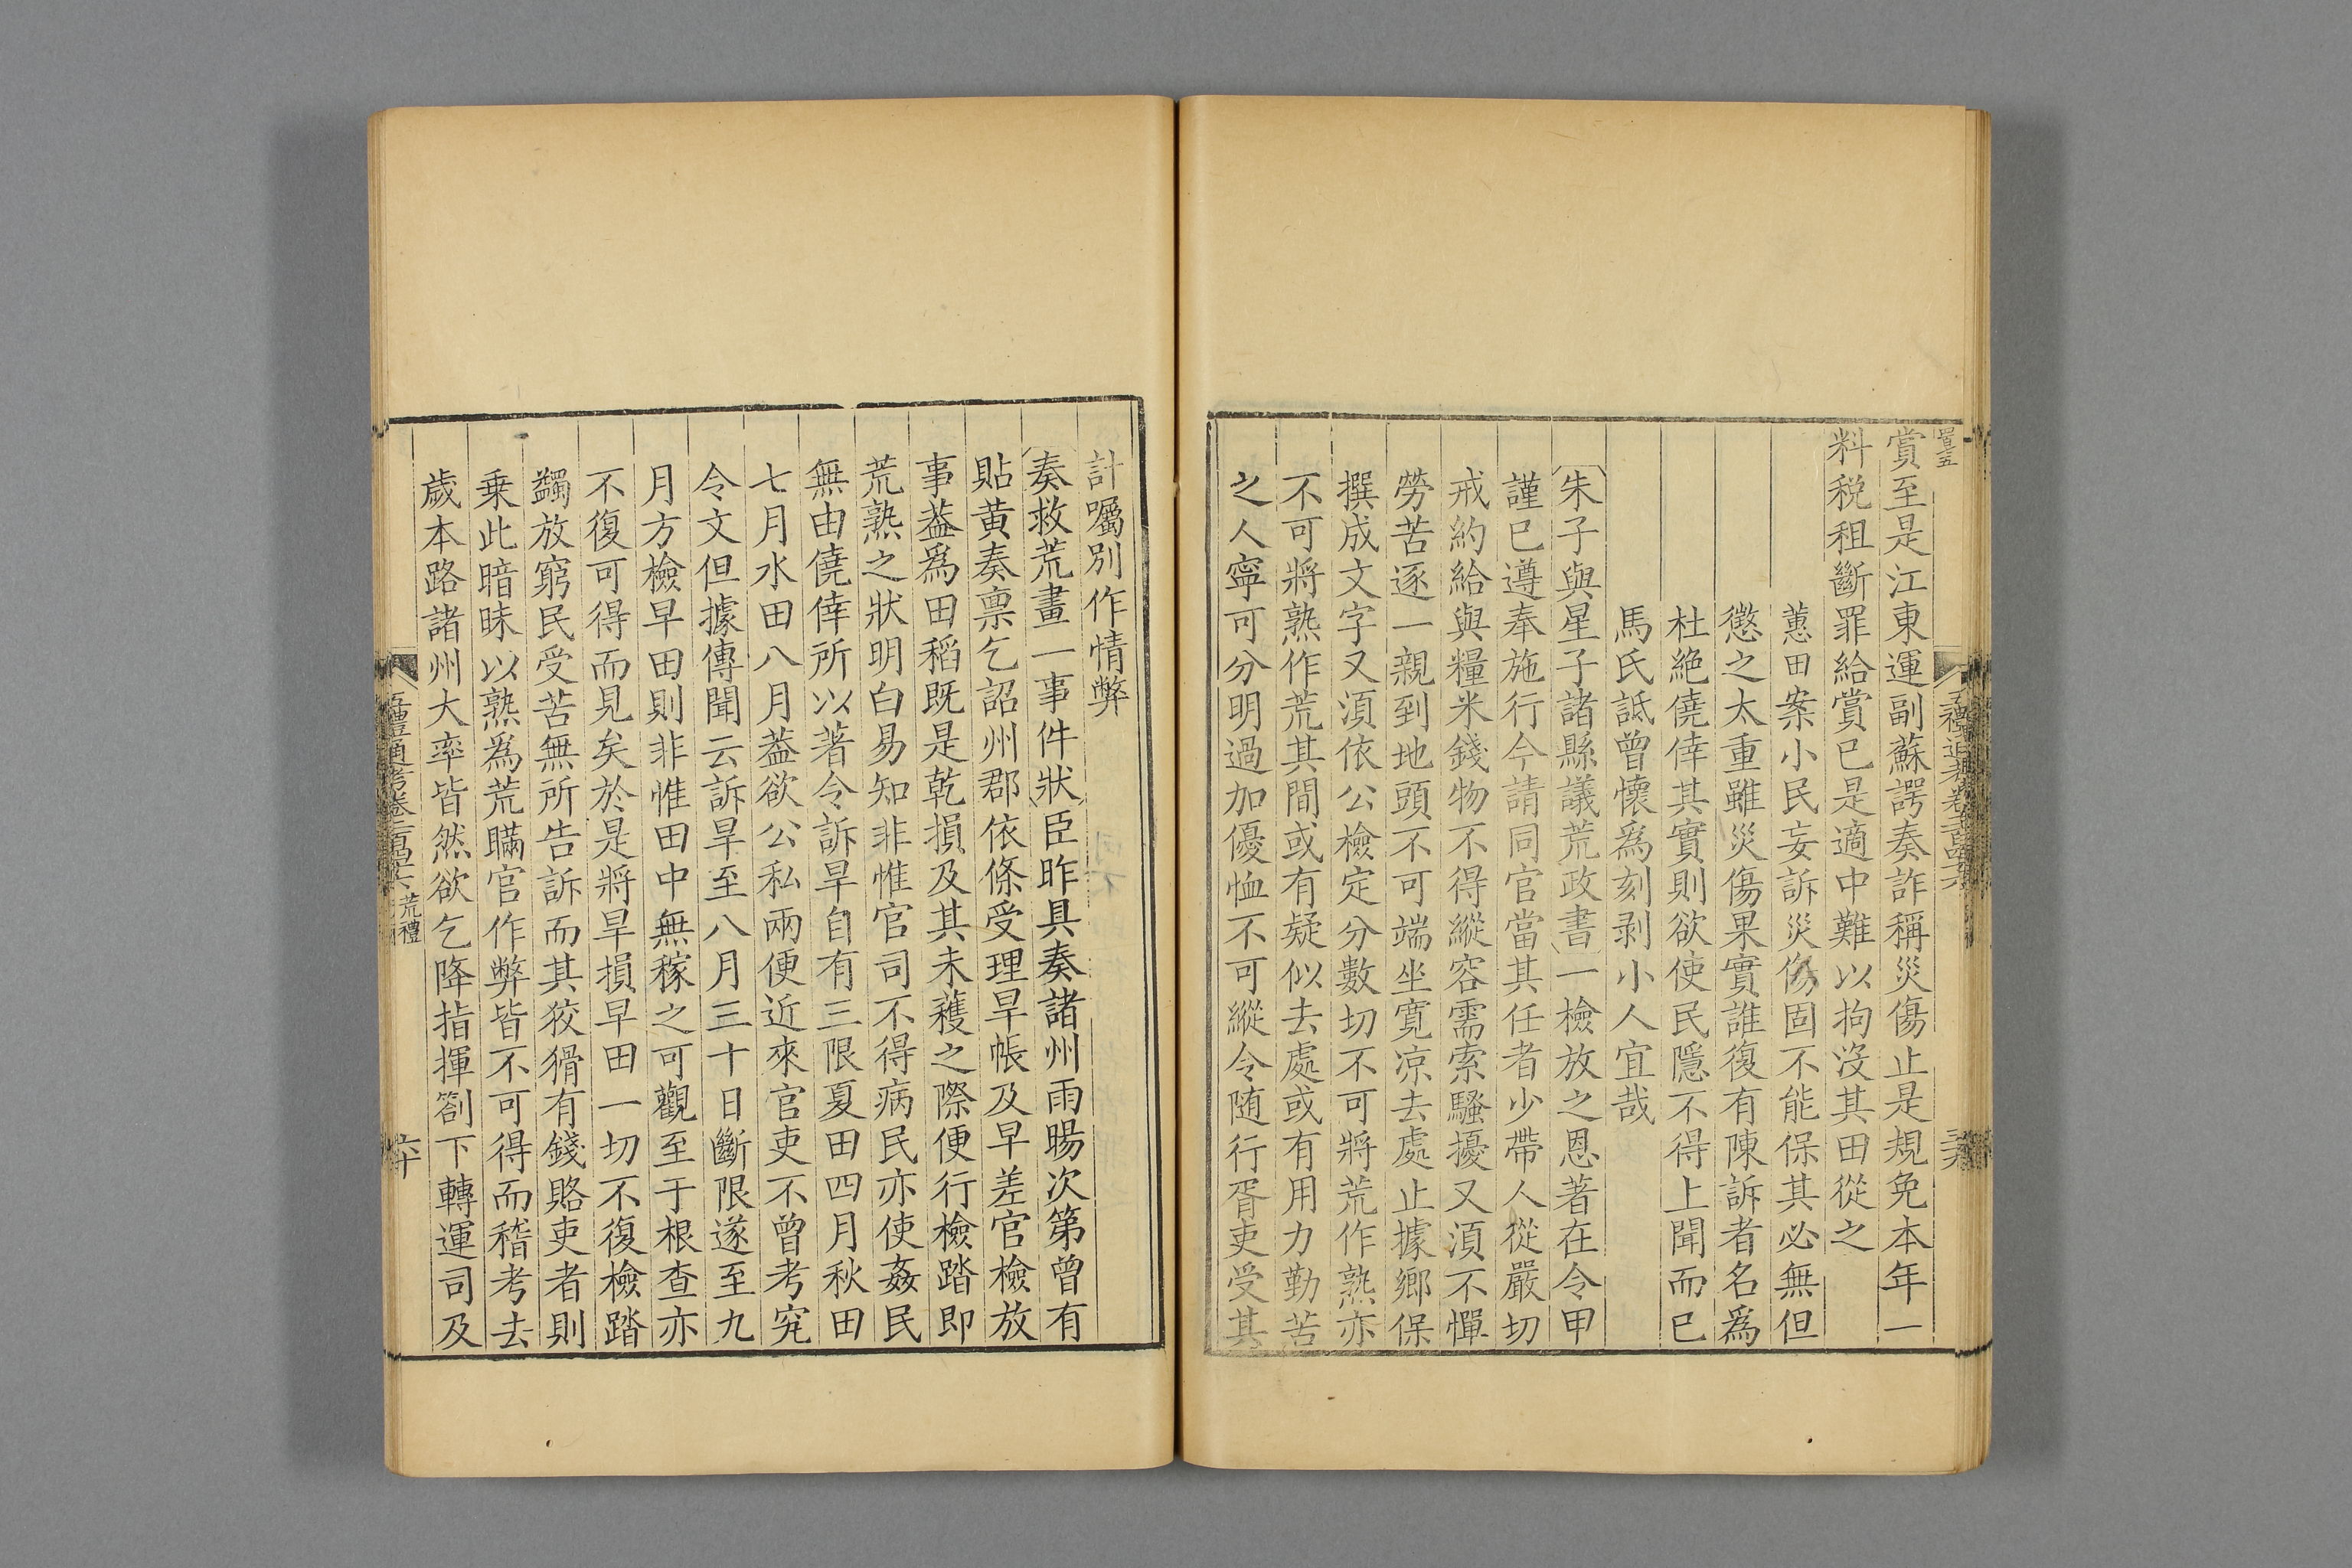 賞至是江東運副蘇諤奏詐稱災傷止是規免本年一
料税租斷罪給賞已是適中難以拘沒其田從之
蕙田案小民妄訴災傷固不能保其必無但
懲之太重雖災傷果實誰復有陳訴者名爲
杜絶僥倖其實則欲使民隱不得上聞而已
馬氏詆曾懷爲刻剥小人宜哉
朱子與星子諸縣議荒政書一檢放之恩著在令甲
謹已遵奉施行今請同官當其任者少帶人從嚴切
戒約給與糧米錢物不得縱容需索騷擾又湏不憚
勞苦逐一親到地頭不可端坐寛凉去處止據鄉保
撰成文字又湏依公檢定分數切不可將荒作熟亦
不可將熟作荒其間或有疑似去處或有用力勤苦
之人寧可分明過加優恤不可縱令随行胥吏受其
計囑别作情弊
奏救荒畫一事件狀臣昨具奏諸州雨暘次第曾有
貼黄奏禀乞詔州郡依條受理旱帳及早差官檢放
事葢爲田稻既是乾損及其未穫之際便行檢踏即
荒熟之狀明白易知非惟官司不得病民亦使姦民
無由僥倖所以著令訴旱自有三限夏田四月秋田
七月水田八月葢欲公私兩便近來官吏不曾考究
令文但據傳聞云訴旱至八月三十日斷限遂至九
月方檢早田則非惟田中無稼之可觀至于根查亦
不復可得而見矣於是將旱損早田一切不復檢踏
蠲放窮民受苦無所告訴而其狡猾有錢賂吏者則
乗此暗昧以熟爲荒瞞官作弊皆不可得而稽考去
歲本路諸州大率皆然欲乞降指揮劄下轉運司及
五禮通考卷二百四十六 荒禮
六十